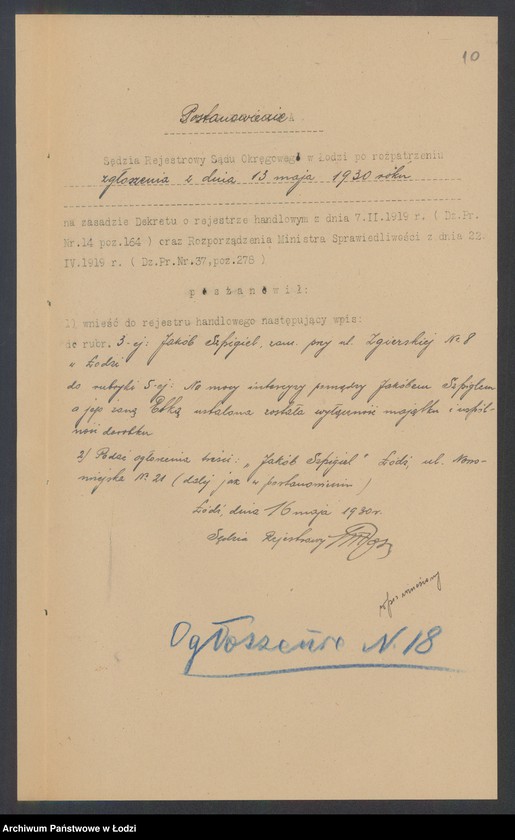 10
Postanowienie
Sędzia Rejestrowy Sądu Okręgowego w Łodzi po rozpatrzeniu
zgłoszenia z dnia 13 maja 1930 roku
na zasadzie Dekretu o rejestrze handlowym z dnia 7.II.1919 r. ( Dz.Pr.
Nr.14 poz.164 ) oraz Rozporządzenia Ministra Sprawiedliwości z dnia 22.
IV.1919 r. ( Dz.Pr.Nr.37,poz.278 )
p o s t a n o w i ł:
1) wnieść do rejestru handlowego następujący wpis:
do rubr. 3-ej: Jakób Szpigiel, zam. przy ul. Zgierskiej No 8
w Łodzi
do rubryki 5-ej: Na mocy intercyzy pomiędzy Jakóbem Szpiglem
a jego żoną Etką ustalona została wyłączność majątku i wspól-
ność dorobku
2) Podać ogłoszenia treści: „Jakób Szpigiel" Łódź, ul. Nowo-
miejska No 21 (dalej jak w postanowieniu)
Łódź, dnia 16 maja 1930 r.
Sędzia Rejestrowy
wpis wniesiony
Ogłoszenie N. 18
Archiwum Państwowe w Łodzi